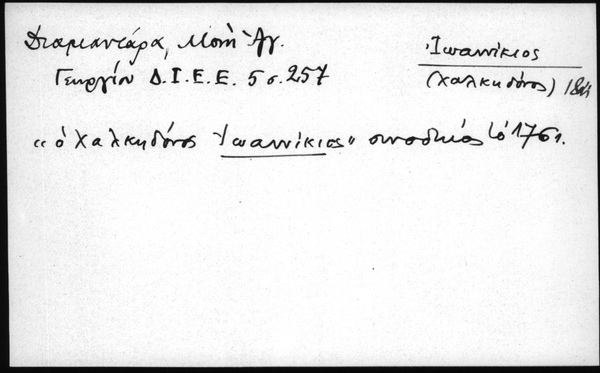 Διαμαντάρα, Μονὴ Ἁγ.
Γεωργίου Δ.Ι.Ε.Ε. 5 σ. 257
Ἰωαννίκιος
(Χαλκηδόνος)
«ὁ Χαλκηδόνος Ἰωαννίκιος» συνοδικός τῷ 1761.